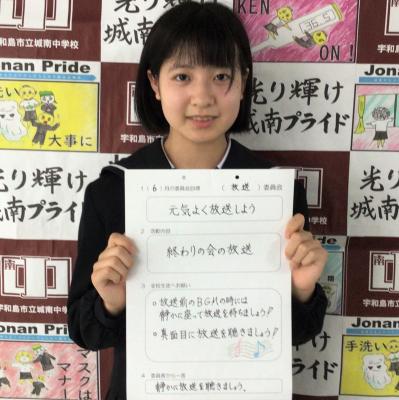 KEN
36.5
ON!
宇和島市立城南中学校
城南プライド
Jonan Pride
手洗い
大事に
光り輝け
城南プライド
宇和島市立城南中学校
Jonan Pride
光り輝け
城南プライド
1（6）月の委員会目標　（放送）委員会
元気よく放送しよう
2 活動内容
終わりの会の放送
3 全校生徒へお願い
○放送前のBGMの時には
静かに座って放送を待ちましょう!
○真面目に放送を聴きましょう!
4 委員長から一言
静かに放送を聴きましょう。
光り輝け
城南プライド
南中
宇和島市立城南中学校
Jonan Pride
マスクは
マナー
光り輝け
城南プライド
Jonan Pride
手洗い